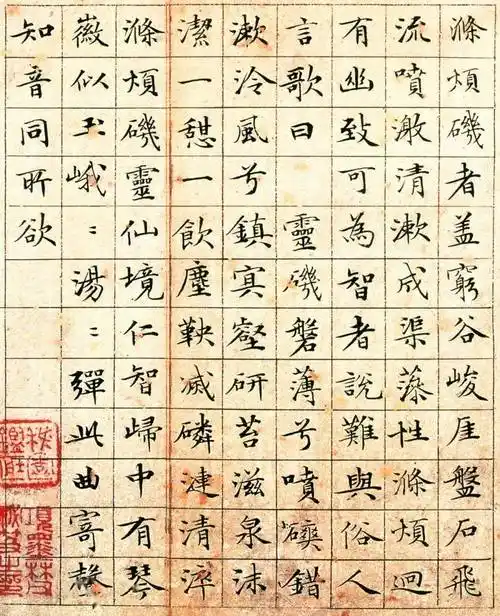 滌煩磯者盖窮谷峻厓盤石飛
流噴激清漱成渠藻性滌煩迥
有幽致可為智者說難與俗人
言歌曰 靈磯磐薄兮噴磢錯
漱泠風兮鎮冥壑研苔滋泉沫
潔一憇一飲塵鞅滅磷漣清淬
滌煩磯靈仙境仁智歸中有琴
徽似玉峨〻湯〻彈此曲寄聲
知音同所欲